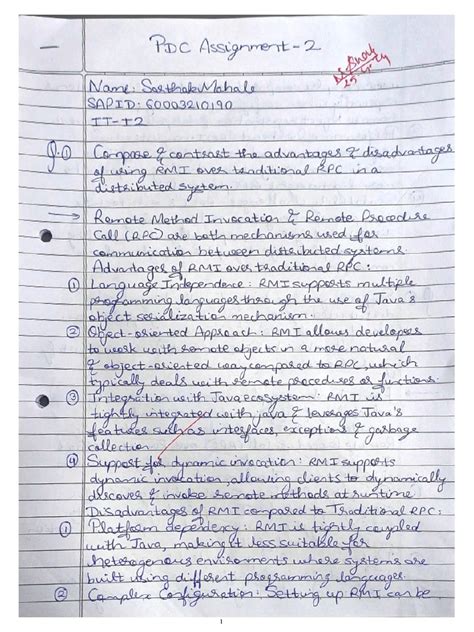 PDC Assignment-2
Name: Sarthak Mahale
SAPID: 60003210190
IT-I2
Q.① Compose & contrast the advantages & disadvantages
of using RMI over traditional RPC in a
distributed system.
→ Remote Method Invocation & Remote Procedure
Call (RPC) are both mechanisms used for
communication between distributed systems.
Advantages of RMI over traditional RPC:
① Language Independence: RMI supports multiple
programming languages through the use of Java's
object serialization mechanism.
② Object-oriented Approach: RMI allows developers
to work with remote objects in a more natural
& object-oriented way compared to RPC, which
typically deals with remote procedures or functions.
③ Integration with Java ecosystem: RMI is
tightly integrated with java & leverages Java's
features such as interfaces, exceptions & garbage
collection.
④ Support for dynamic invocation: RMI supports
dynamic invocation, allowing clients to dynamically
discover & invoke remote methods at runtime
Disadvantages of RMI compared to Traditional RPC:
① Platform dependency: RMI is tightly coupled
with Java, making it less suitable for
heterogenous enviroments where systems are
built using different programming languages.
② Complex Configuration: Setting up RMI can be
1